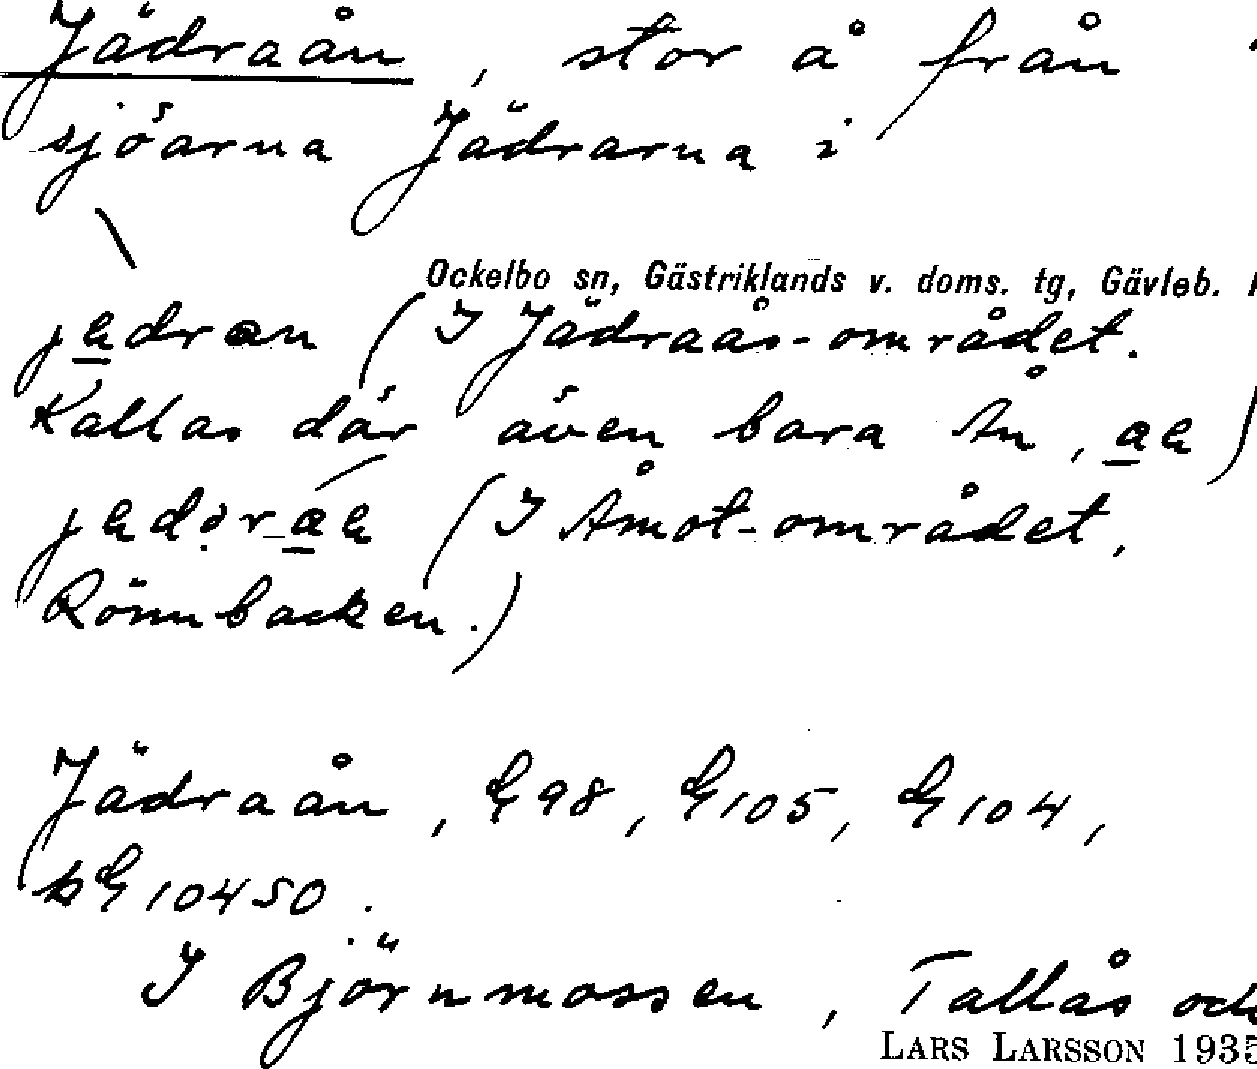 Jädraån, stor å från
sjöarna Jädrarna i
Ockelbo sn, Gästriklands v. doms. tg, Gävleb.
jädran (I Jädraås-området.
Kallas där även bara Ån,
(I Åmot-området,
Rönnbacken.)
Jädraån, G98, G105, G104,
bG10450.
I Björnmossen, Tallås och
LARS LARSSON 1935